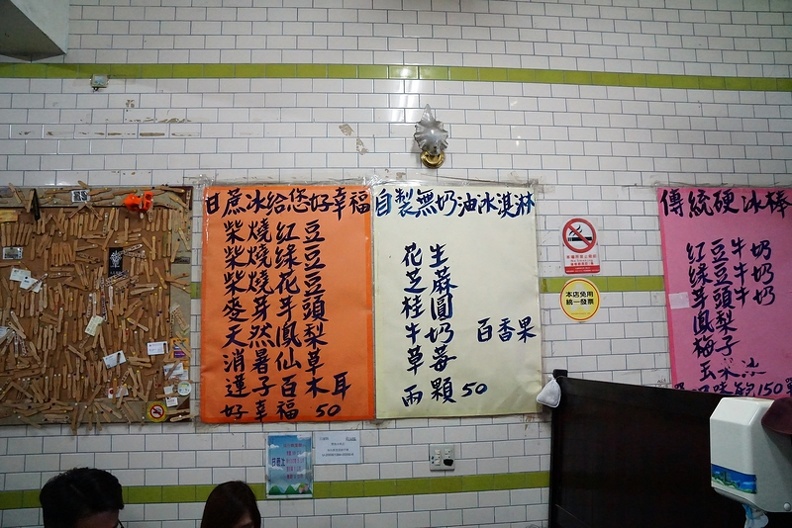 甘蔗冰給您好幸福
柴燒紅豆
柴燒綠豆
柴燒花豆
麥芽芋頭
天然鳳梨
消暑仙草
蓮子百木耳
好幸福 50
自製無奶油冰淇淋
花生
芝麻
桂圓
牛奶 百香果
草莓
兩顆50
本店免用
統一發票
傳統硬冰棒
紅豆牛奶
綠豆牛奶
芋頭牛奶
鳳梨
梅子